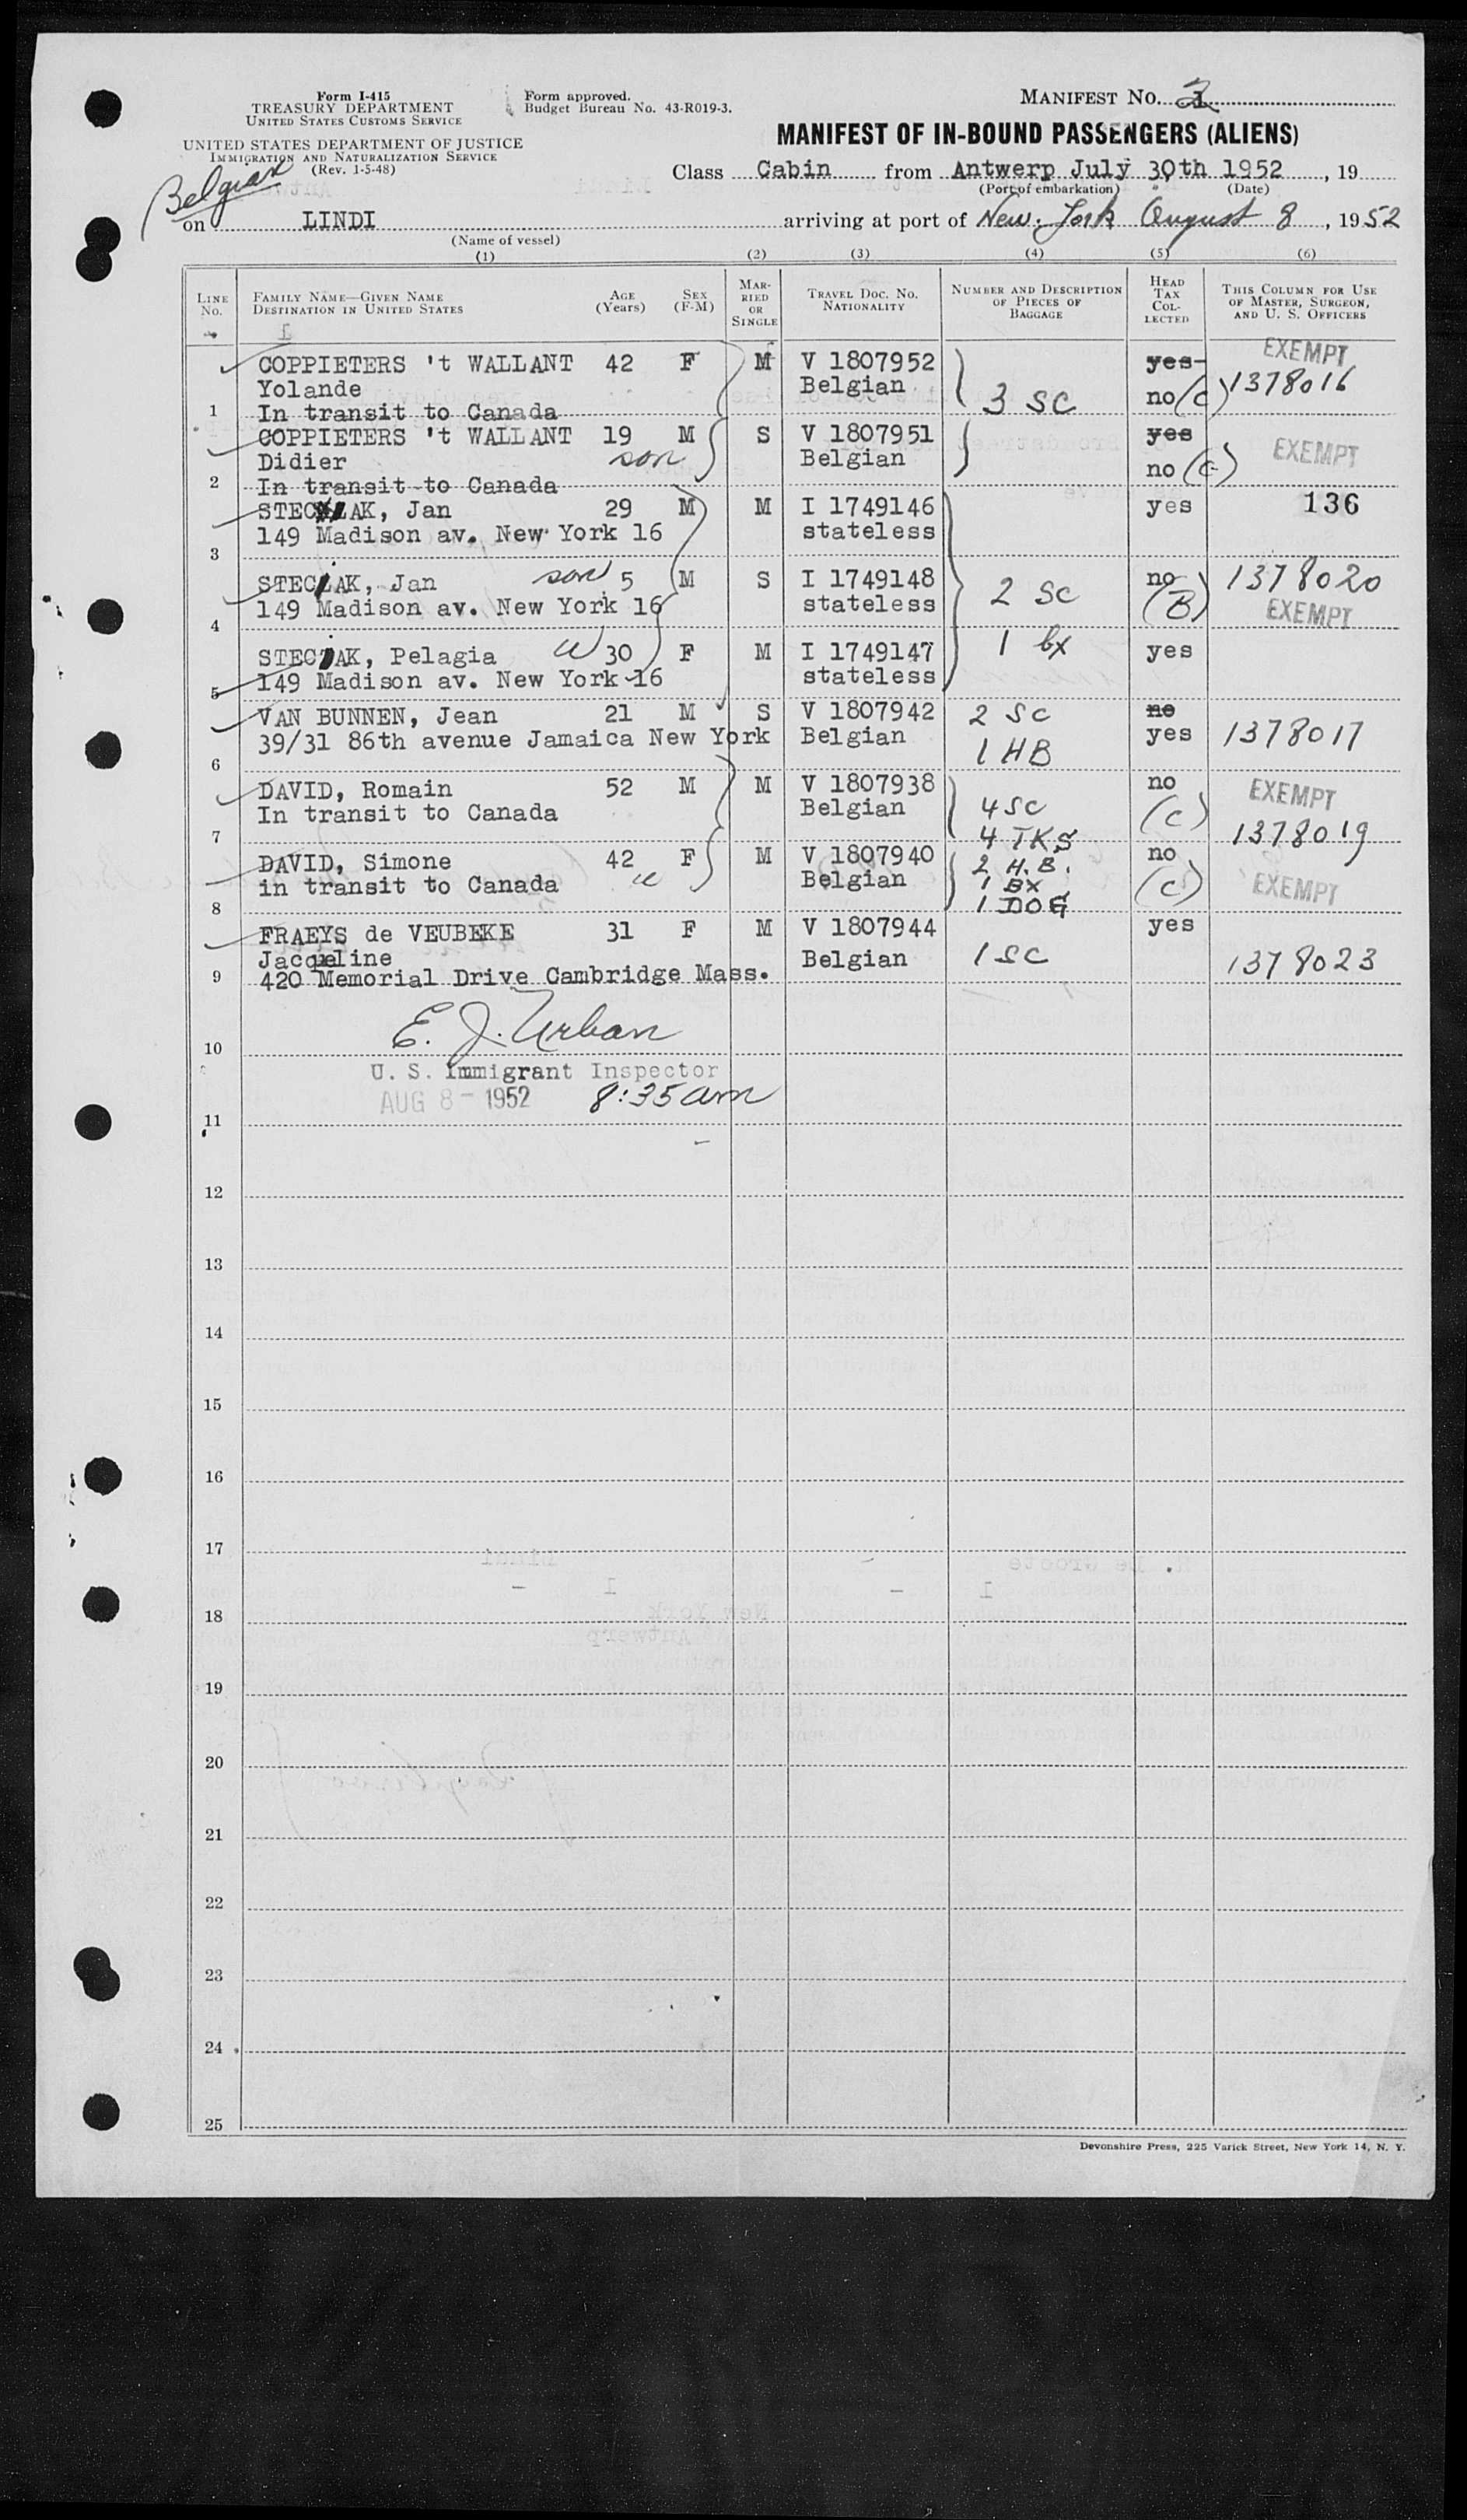 Form I-415
TREASURY DEPARTMENT
UNITED STATES CUSTOMS SERVICE
UNITED STATES DEPARTMENT OF JUSTICE
IMMIGRATION AND NATURALIZATION SERVICE
(Rev. 1-5-48)
Form approved.
Budget Bureau No. 43-R019-3.
MANIFEST NO.
MANIFEST OF IN-BOUND PASSENGERS (ALIENS)
Class Cabin from Antwerp July 30th 1952, 19
(Port of embarkation) (Date)
Belgian
on LINDI arriving at port of New York August 8, 1952
(Name of vessel)
(1) (2) (3) (4) (5) (6)
LINE NO. FAMILY NAME—GIVEN NAME DESTINATION IN UNITED STATES AGE (Years) SEX (F-M) MARRIED OR SINGLE TRAVEL DOC. NO. NATIONALITY NUMBER AND DESCRIPTION OF PIECES OF BAGGAGE HEAD TAX COLLECTED THIS COLUMN FOR USE OF MASTER, SURGEON, AND U. S. OFFICERS
COPPIETERS 't WALLANT 42 F M V 1807952 yes EXEMPT
Yolande Belgian 3 SC no (C) 1378016
1 In transit to Canada
COPPIETERS 't WALLANT 19 M S V 1807951 yes
Didier son Belgian no (C) EXEMPT
2 In transit to Canada
STECIAK, Jan 29 M M I 1749146 yes 136
149 Madison av. New York 16 stateless
3
STECIAK, Jan son 5 M S I 1749148 2 SC no 1378020
149 Madison av. New York 16 stateless (B) EXEMPT
4
STECIAK, Pelagia W 30 F M I 1749147 1 bx yes
5 149 Madison av. New York 16 stateless
VAN BUNNEN, Jean 21 M S V 1807942 2 SC no
39/31 86th avenue Jamaica New York Belgian 1 HB yes 1378017
6
DAVID, Romain 52 M M V 1807938 no EXEMPT
In transit to Canada Belgian 4 SC (C)
7 4 TKS 1378019
DAVID, Simone 42 F M V 1807940 2 H.B. no
in transit to Canada W Belgian 1 BX (C) EXEMPT
8 1 DOG
FRAEYS de VEUBEKE 31 F M V 1807944 yes
Jacqueline Belgian 1 SC 1378023
9 420 Memorial Drive Cambridge Mass.
E. J. Urban
10
U. S. Immigrant Inspector
AUG 8 - 1952 8:35 am
11
12
13
14
15
16
17
18
19
20
21
22
23
24
25
Devonshire Press, 225 Varick Street, New York 14, N. Y.